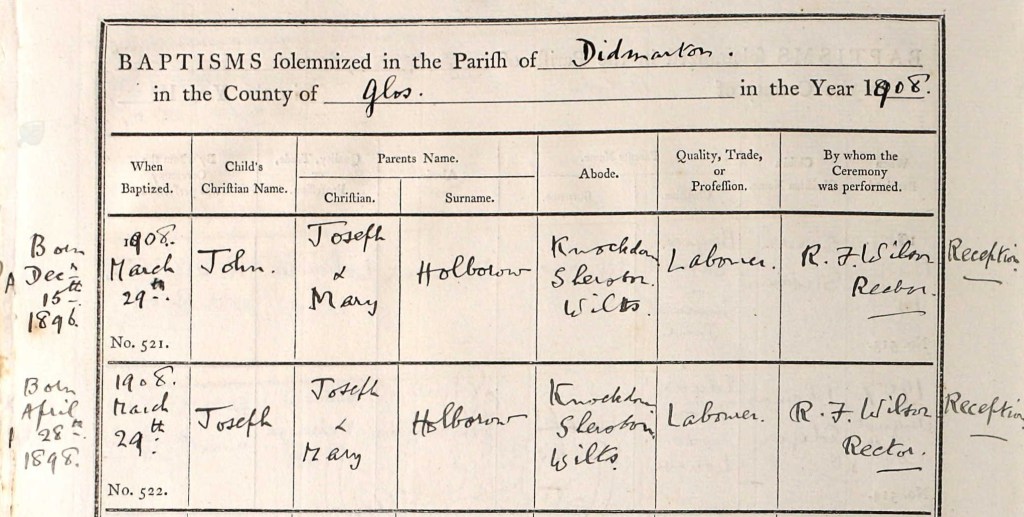 BAPTISMS ſolemnized in the Pariſh of Didmarton.
in the County of Glos. in the Year 1908.
When Baptized.
Child's Chriſtian Name.
Parents Name.
Chriſtian.
Surname.
Abode.
Quality, Trade, or Profeſſion.
By whom the Ceremony was performed.
Born
Decr
15th
1896.
1908.
March
29th.
No. 521.
John.
Joseph
&
Mary
Holborow
Knockdown
Sherston
Wilts.
Labourer.
R. F. Wilson
Rector.
Reception
Born
April
28th
1898.
1908.
March
29th.
No. 522.
Joseph
Joseph
&
Mary
Holborow
Knockdown
Sherston
Wilts.
Labourer.
R. F. Wilson
Rector.
Reception